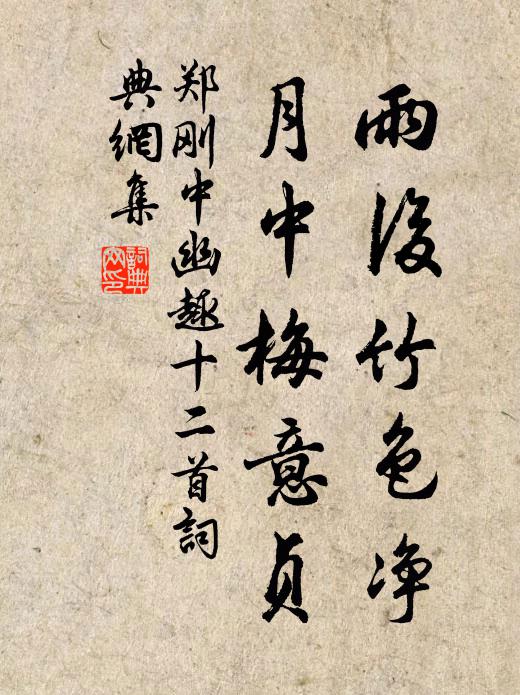 雨後竹色净
月中梅意贞
郑刚中幽趣十二首詞
典網集
詞典
网印